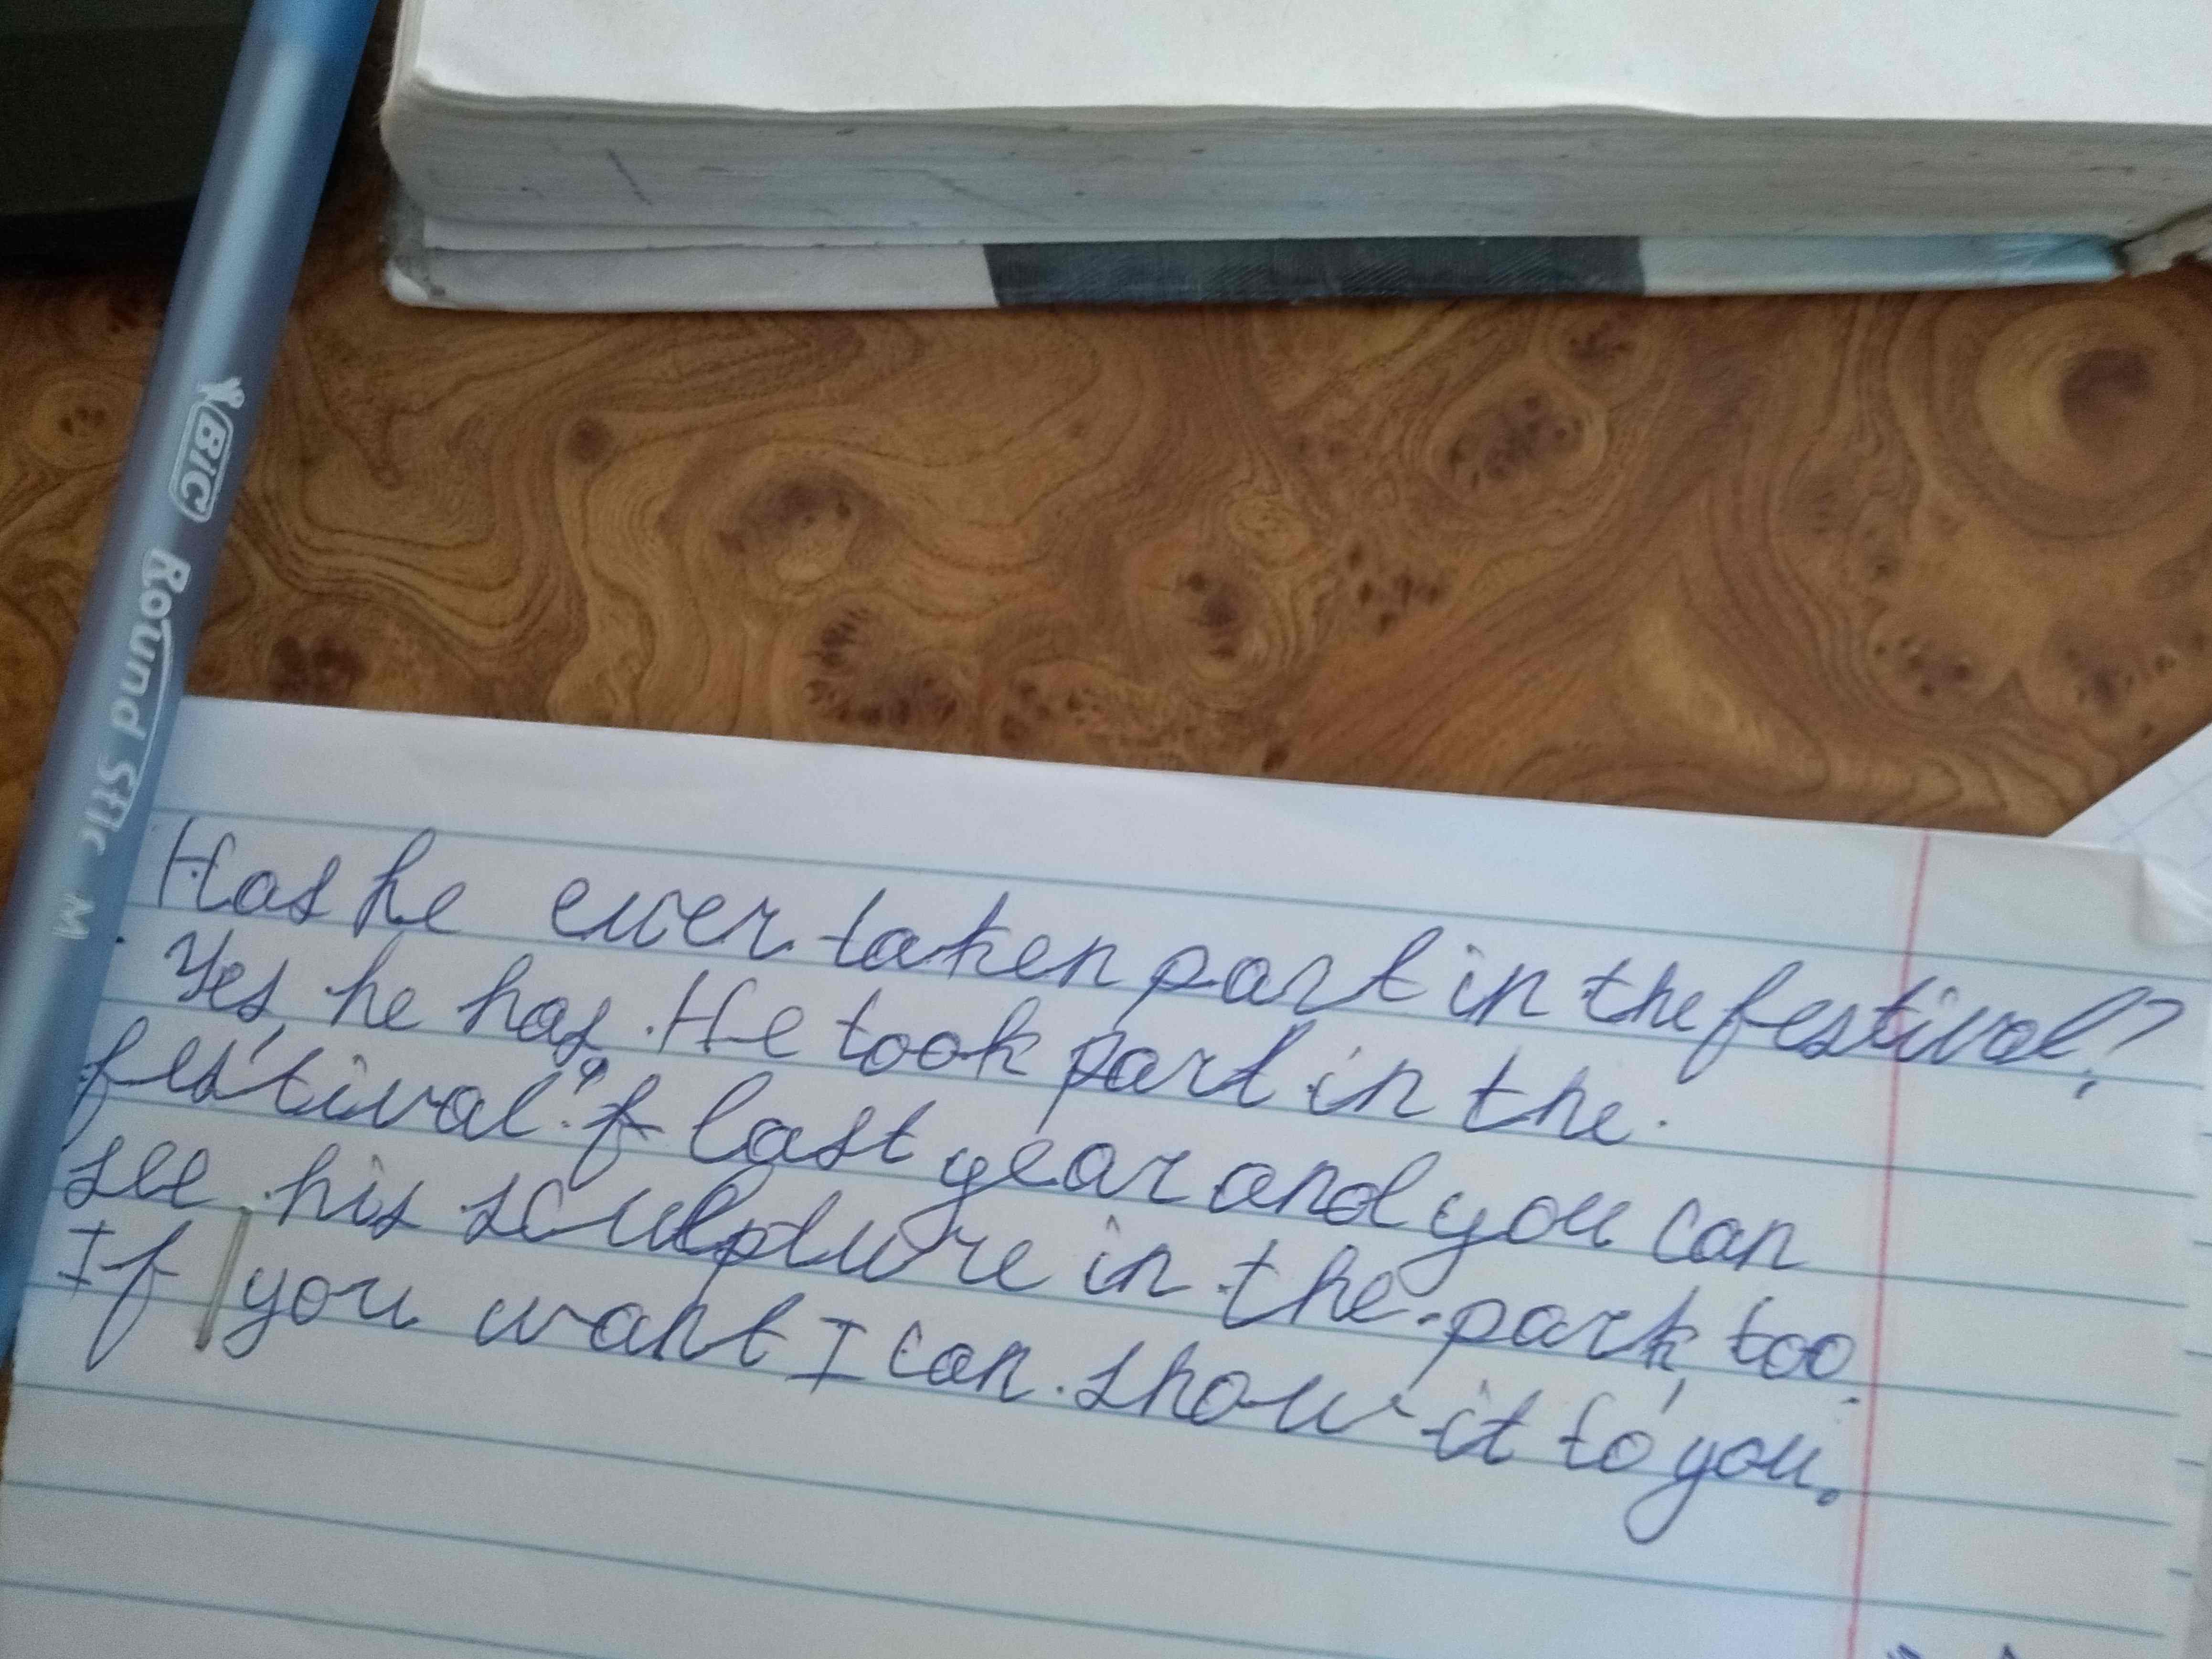 BIC Round Stic M
Has he ever taken part in the festival?
Yes, he has. He took part in the
festival last year and you can
see his sculpture in the park, too.
If you want I can show it to you.